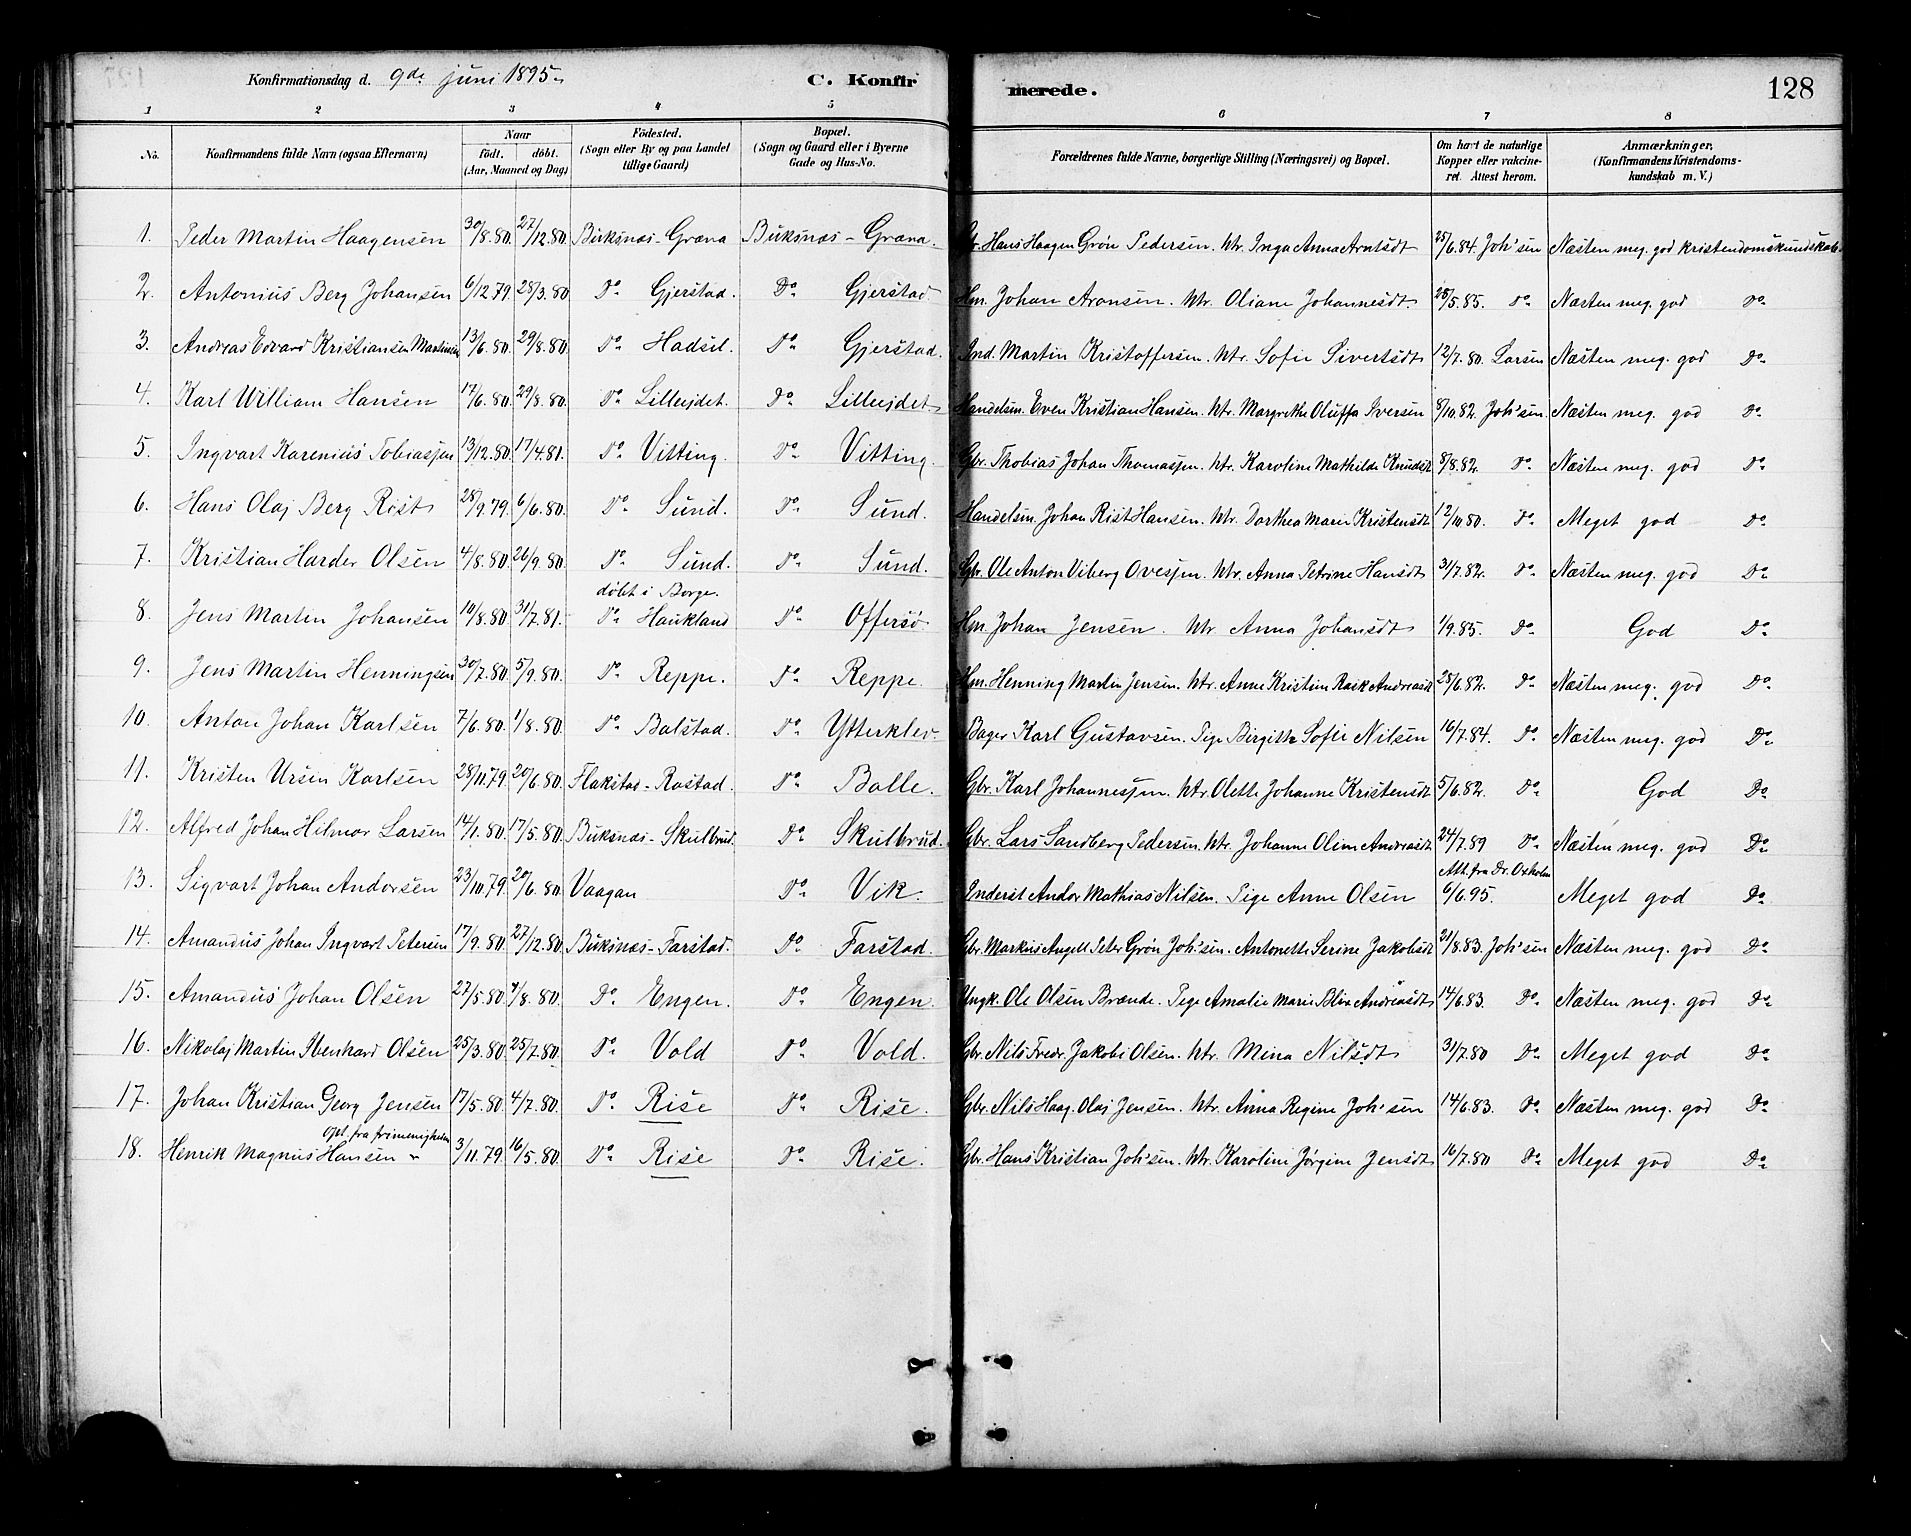 Konfirmationsdag d. 9de juni 1895. C. Konfirmerede. 128
1 2 3 4 5 6 7 8
No. Konfirmandens fulde Navn (ogsaa Efternavn) Naar födt. döbt. (Aar, Maaned og Dag) Födested. (Sogn eller By og paa Landet tillige Gaard) Bopæl. (Sogn og Gaard eller i Byerne Gade og Hus-No. Forældrenes fulde Navne, borgerlige Stilling (Næringsvei) og Bopæl. Om havt de naturlige Kopper eller vakcineret. Attest herom. Anmærkninger. (Konfirmandens Kristendomskundskab m. V.)
1. Peder Martin Haagensen 30/8.80. 27/12.80. Buksnæs-Græna Buksnæs-Græna. Gbr. Hans Haagen Grön Pedersen. Htr. Inga Anna Arntsdt 25/6.84. Joh'sen Næsten meg. god kristendomskundskab.
2. Antonius Berg Johansen 6/12.79 28/3.80 Do Gjerstad. Do Gjerstad. Hm. Johan Aronsen. Htr. Oliane Johannesdt 28/5.85. Do Næsten meg. god Do
3. Andreas Edvard Kristiansen Martinsen 13/6.80. 29/8.80. Do Hadsel. Do Gjerstad. Ind. Martin Kristoffersen. Htr. Sofie Sivertsdt 12/7.80. Larsen Næsten meg. god Do
4. Karl William Hansen 17/6.80. 29/8.80. Do Lilleejdet. Do Lilleejdet Handelsm. Even Kristian Hansen. Htr. Margrethe Oluffa Iversen 8/10.82. Joh'sen. Næsten meg. god Do
5. Ingvart Karenius Tobiassen 13/12.80. 17/4.81. Do Vitting. Do Vitting. Gbr. Thobias Johan Thomassen. Htr. Karoline Mathilde Knudsdt 8/8.82. Do Næsten meg. god Do
6. Hans Olaj Berg Rist 28/9.79. 6/6.80. Do Sund. Do Sund. Handelsm. Johan Rist Hansen. Htr. Dorthea Marie Kristensdt 12/10.80. Do Meget god Do
7. Kristian Harder Olsen 4/8.80. 26/9.80. Do Sund. Do Sund. Gbr. Ole Anton Viberg Ovesen. Htr. Anna Petrine Hansdt 31/7.82. Do Næsten meg. god Do
döbt i Borge.
8. Jens Martin Johansen 10/8.80. 31/7.81. Do Haukland Do Offersö. Hm. Johan Jensen. Htr Anna Johansdt 1/9.85. Do God Do
9. Jens Martin Henningsen 30/7.80. 5/9.80. Do Reppe. Do Reppe. Hm. Henning Martin Jensen. Htr. Anne Kristine Rask Andreasdt 25/6.82. Do Næsten meg. god Do
10. Anton Johan Karlsen 7/6.80. 1/8.80. Do Balstad. Do Ytterklev. Bager Karl Gustavsen. Pige Birgitte Sofie Nilsen 16/7.84. Do Næsten meg. god Do
11. Kristen Ursin Karlsen 28/11.79. 20/6.80. Flakstad-Rastad. Do Balle. Gbr. Karl Johannessen. Htr. Olette Johanne Kristensdt 5/6.82. Do God Do
12. Alfred Johan Hilmar Larsen 14/1.80. 17/5.80. Buksnæs-Skulbrud. Do Skulbrud. Gbr. Lars Sandberg Pedersen. Htr. Johanne Oline Andreasdt 24/7.89 Do Næsten meg. god Do
Att. fra Dr. Oxholm
13. Sigvart Johan Andorsen 23/10.79. 20/6.80. Vaagan Do Vik. Inderst Andor Mathias Nilsen. Pige Anne Olsen 6/6.95. Meget god Do
14. Amandus Johan Ingvart Petersen 17/9.80. 27/12.80. Buksnæs-Farstad. Do Farstad. Gbr. Markus Angell Peter Grön Joh'sen. Antonette Serine Jakobsdt 21/8.83. Joh'sen Næsten meg. god Do
15. Amandus Johan Olsen 27/5.80. /8.80. Do Engen. Do Engen. Ungk. Ole Olsen Brænde. Pige Amalie Marie Blix Andreasdt 14/6.83. Do Næsten meg. god Do
16. Nikolaj Martin Ibenhard Olsen 25/3.80. 25/7.80. Do Vold Do Vold. Gbr. Nils Fredr. Jakobi Olsen. Htr. Mina Nilsdt 31/7.80 Do Meget god Do
17. Johan Kristian Georg Jensen 17/5.80. 4/7.80. Do Rise Do Rise. Gbr. Nils Haag. Olaj Jensen. Htr. Anna Regine Joh'sen 14/6.83. Do Næsten meg. god Do
opt. fra frimenigheden
18. Henrik Magnus Hansen 3/11.79. 16/5.80. Do Rise Do Rise. Gbr. Hans Kristian Joh'sen. Htr. Karoline Jørgine Jensdt 16/7.80 Do Meget god Do